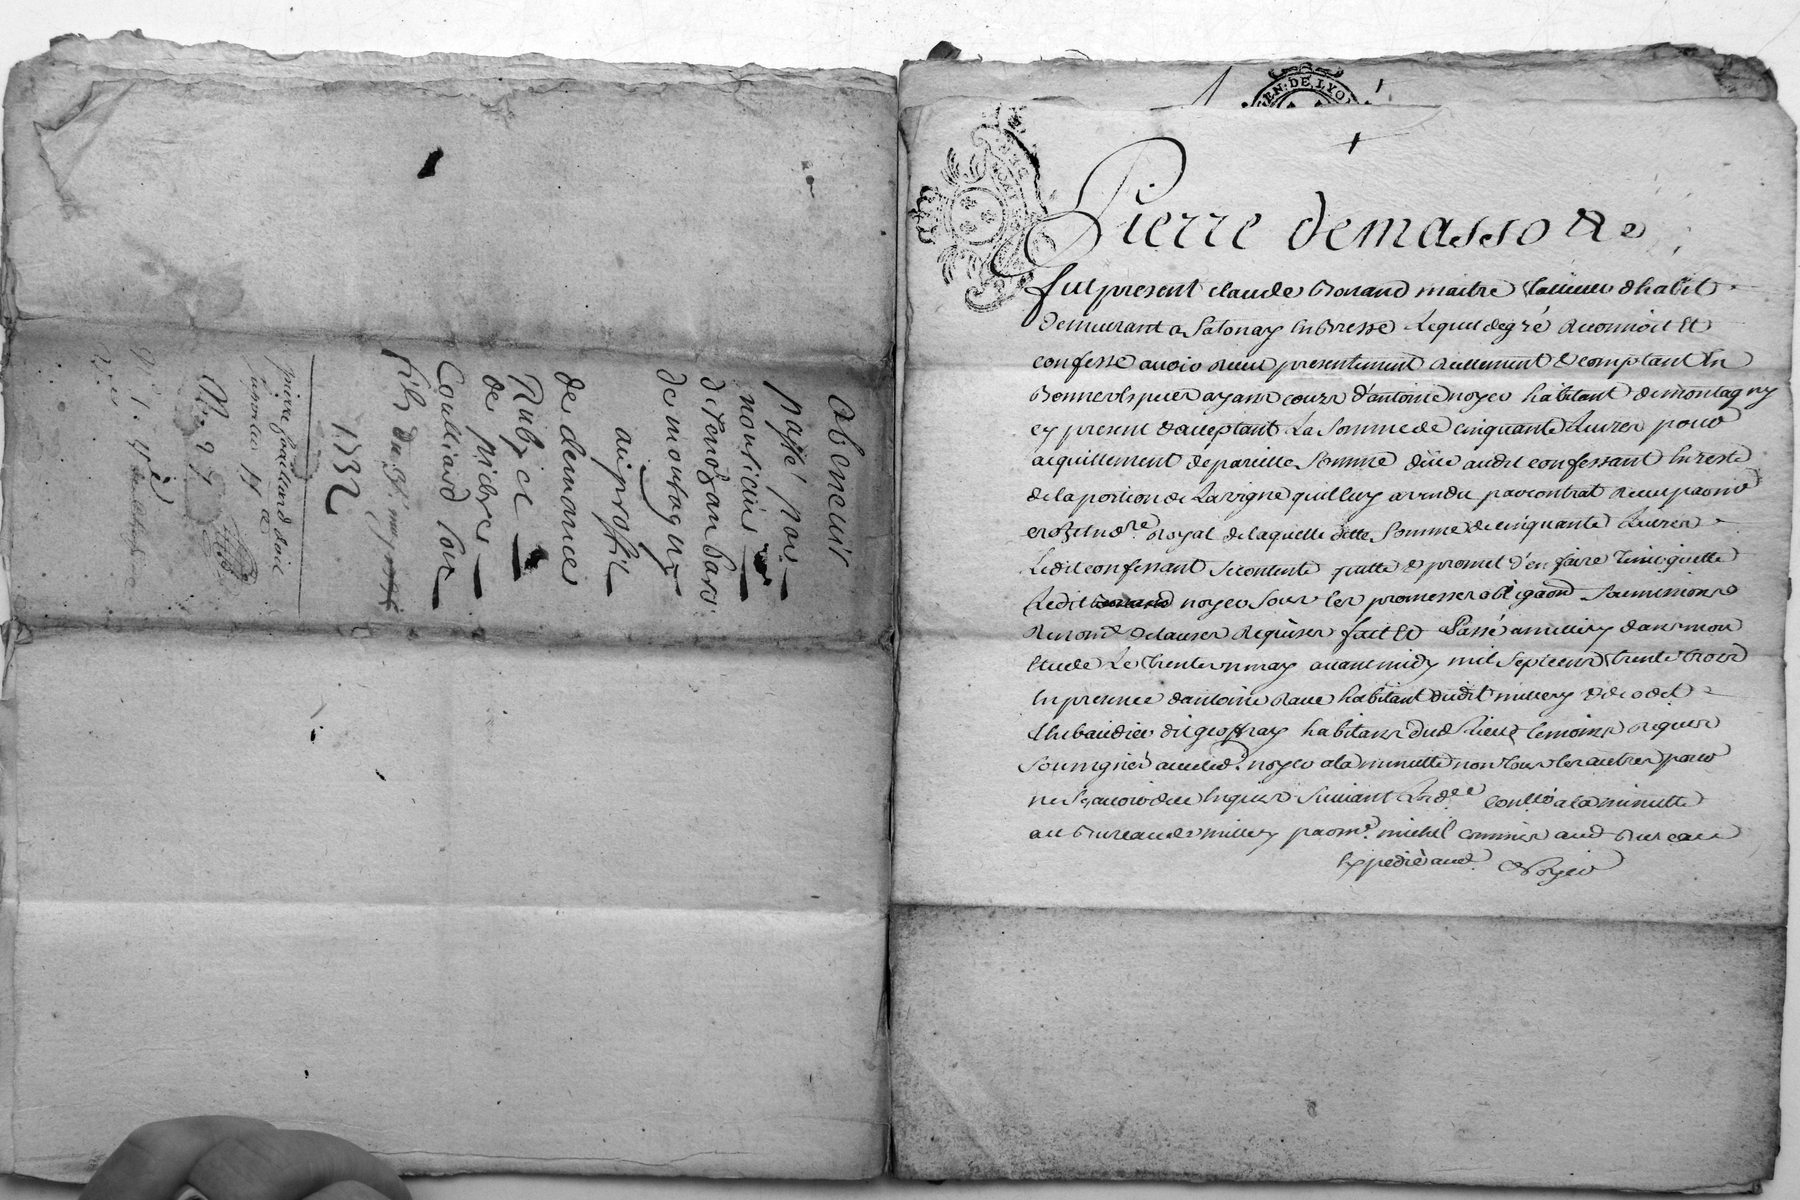 abeneuis
passé par
nourissiés
de montagny
au proffit
de demoances
Rubye
de pières
Couliard
fils du 31 may
1732
pierre Goulliard doit
N 27
GEN. DE LYON
Pierre demasso &c
fut present claude Bonand maitre tailleur dhabit
demeurant a Satonay en Bresse Lequel de gré Reconnoit Et
confesse avoir Receu presentement Reellement & comptant En
Bonnes Especes ayant cours d'antoine noyer habitant de montagny
cy present & acceptant La Somme de cinquante Livres pour
acquittement de pareille Somme düe audit confessant En reste
de la portion de La vigne quil luy a vendu par contrat Receu par
Royal de laquelle ditte Somme de cinquante Livres
Ledit confessant Se contente quitte & promet d'en faire Tenir quitte
Ledit noyer Sous les promesses obligaons Soumissions
Renonc & clauses Requises fait Et Passé a millery dans mon
Etude Le trente un may avant midy mil Sept cens trente trois
En presence d'antoine Rave habitant dudit millery &
thibaudier dit geoffray habitans dud Lieu temoins Requis
Soussignés avec led. noyer a la minutte non tous les autres pour
ne Sçavoir de ce Enquis Suivant L'ord.ce Conllé a la minutte
au Bureau de millery par me. michel commis aud Bureau
Expedié aud. noyer